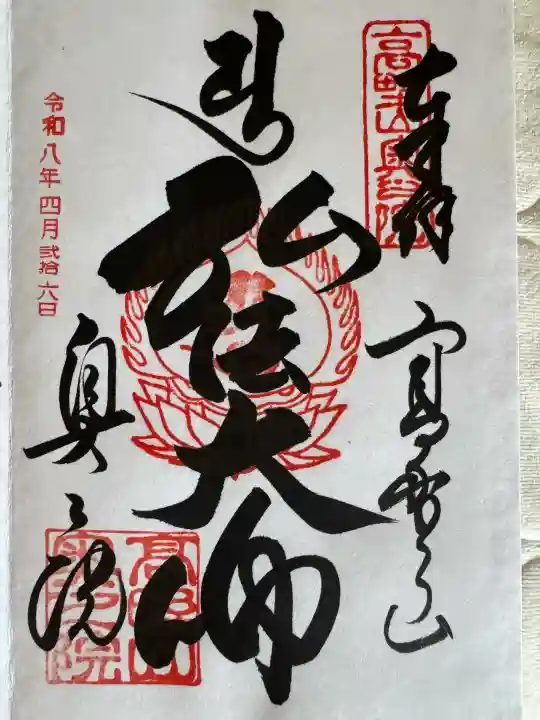 奉拝
高野山
高野山奥之院
弘法大師
奥之院
高野山
奥之院
令和八年四月弐拾六日